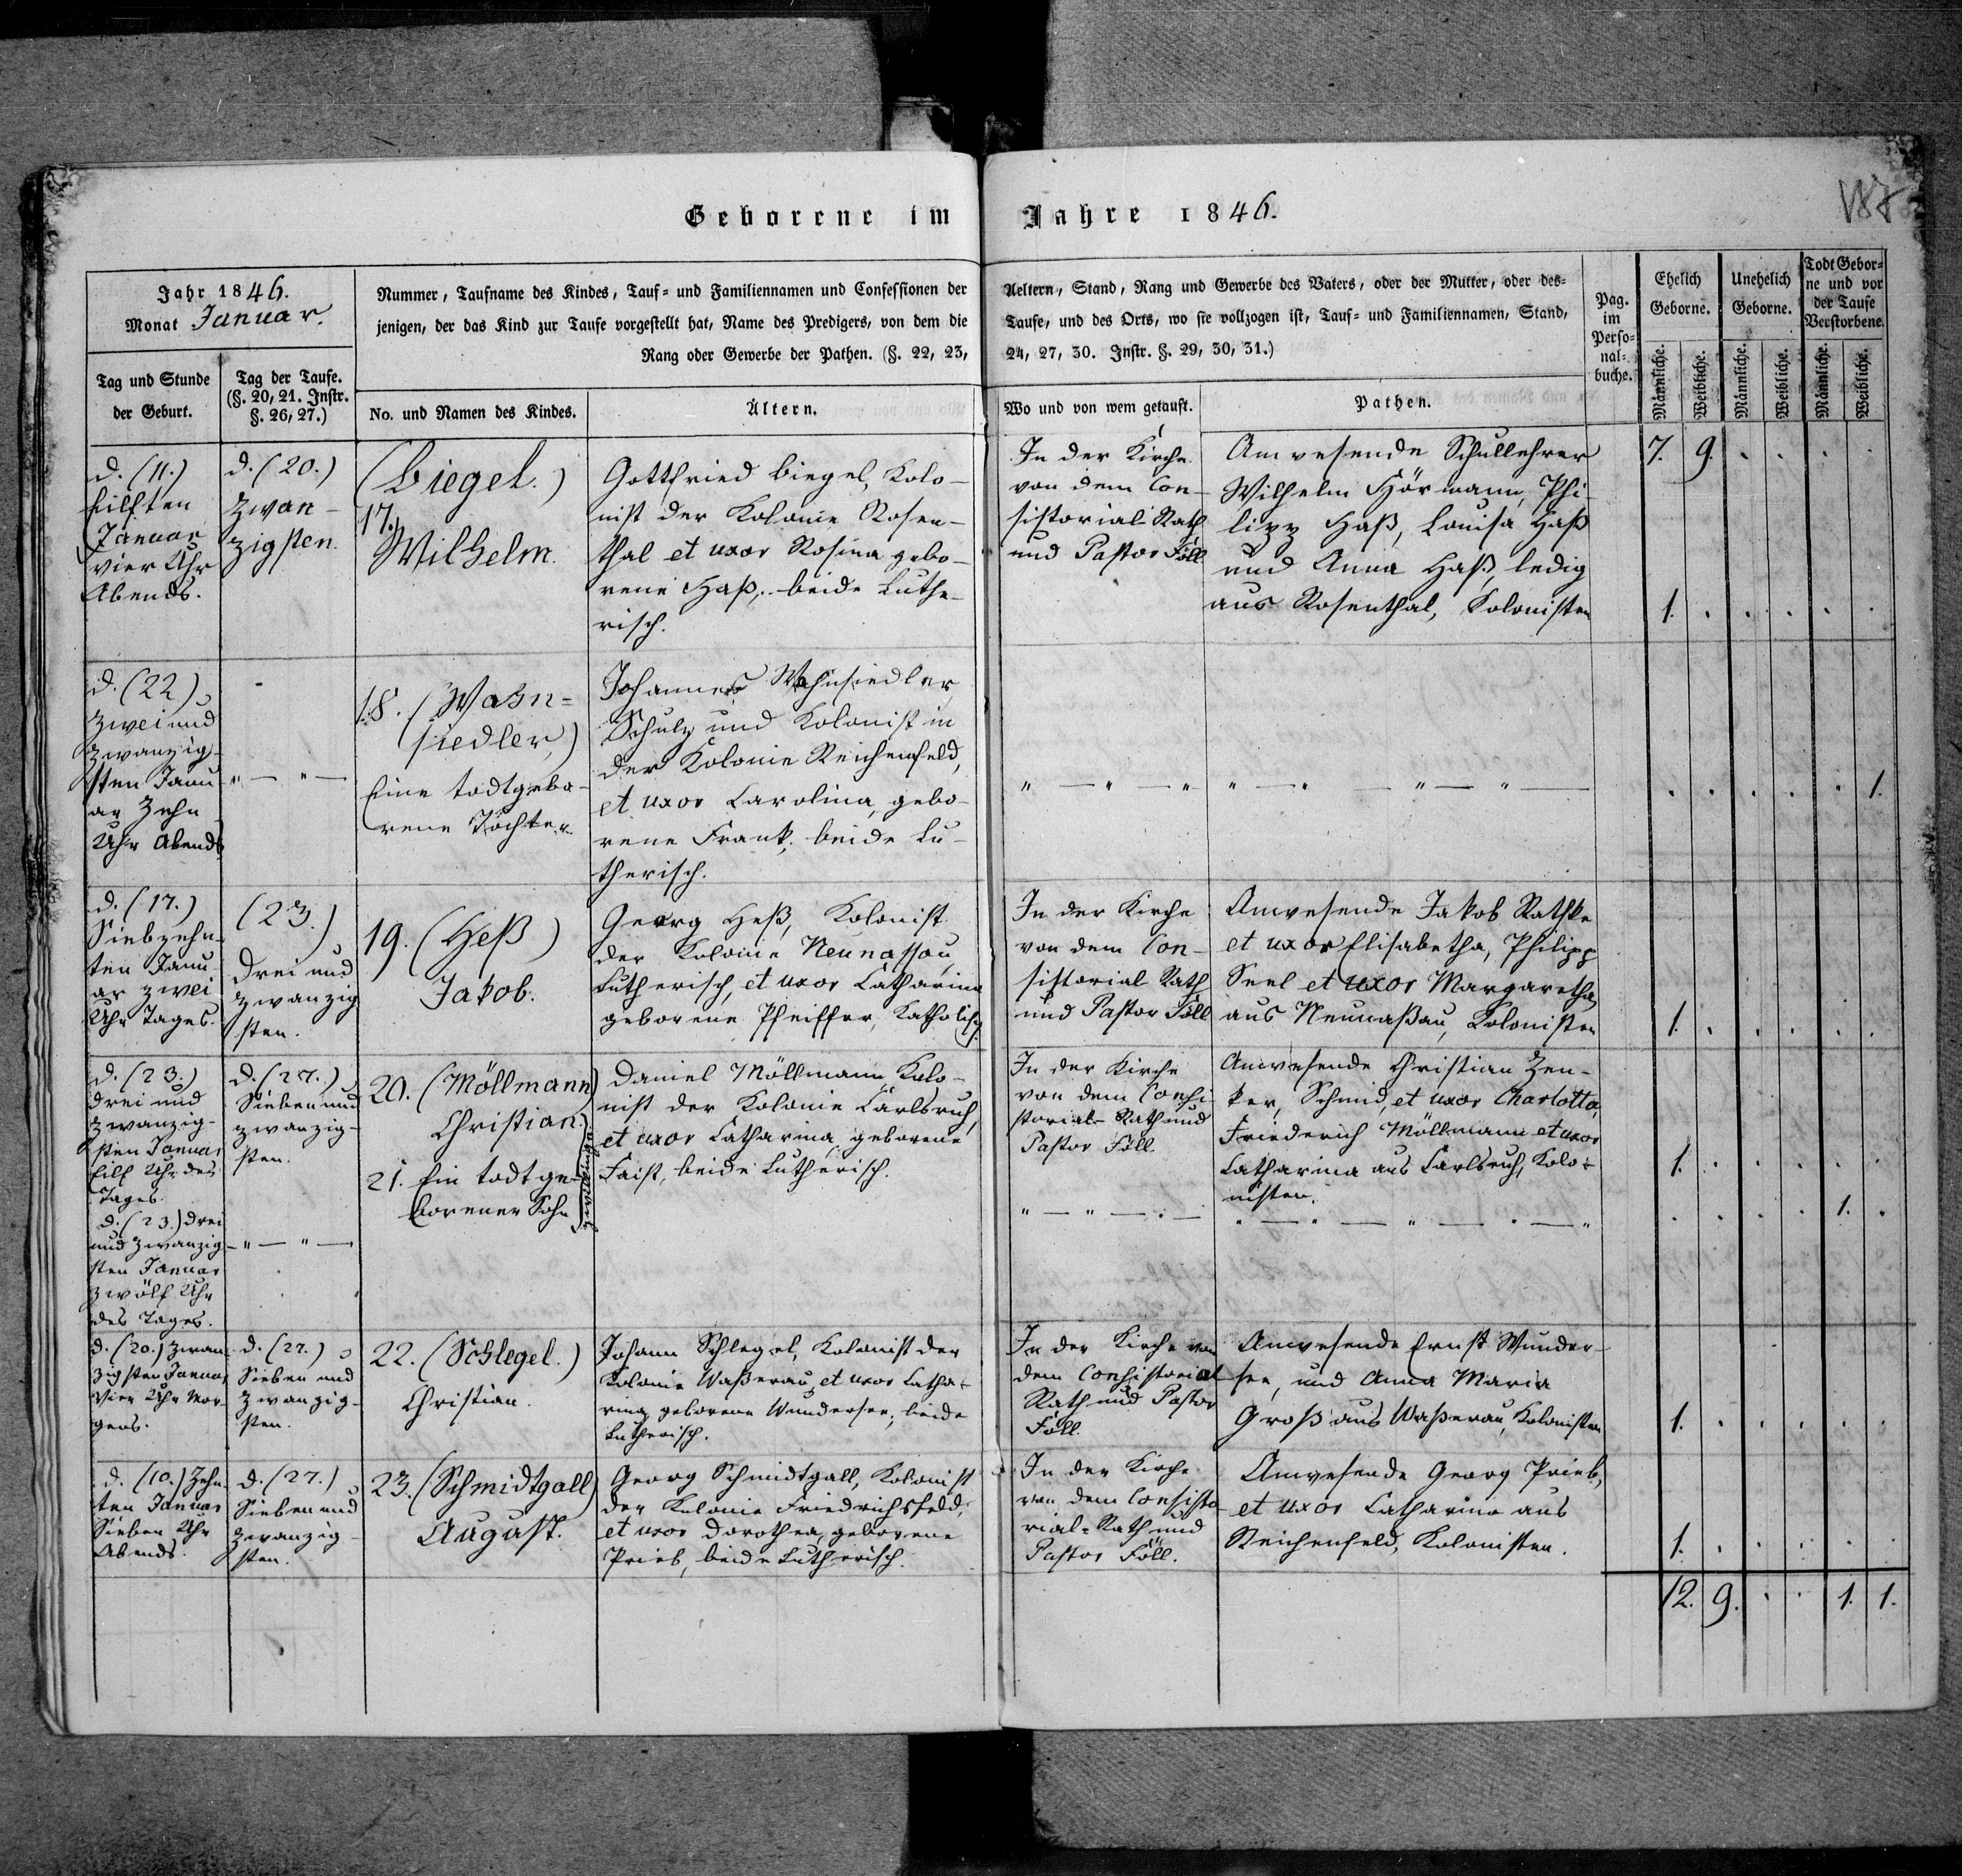 Geborene im Jahre 1846.
Jahr 1846.
Monat Januar.
Nummer, Taufname des Kindes, Tauf- und Familiennamen und Confessionen der Aeltern, Stand, Rang und Gewerbe des Vaters, oder der Mutter, oder des-
jenigen, der das Kind zur Taufe vorgestellt hat, Name des Predigers, von dem die Taufe, und des Orts, wo sie vollzogen ist, Tauf- und Familiennamen, Stand,
Rang oder Gewerbe der Pathen. (§. 22, 23, 24, 27, 30. Instr. §. 29, 30, 31.)
Pag.
im
Perso-
nal-
buche.
Ehelich
Geborne.
Unehelich
Geborne.
Todt Gebor-
ne und vor
der Taufe
Verstorbene.
Tag und Stunde
der Geburt.
Tag der Taufe.
(§. 20, 21. Instr.
§. 26, 27.)
No. und Namen des Kindes.
Ältern.
Wo und von wem getauft.
Pathen.
Männliche.
Weibliche.
Männliche.
Weibliche.
Männliche.
Weibliche.
d. (11.)
Eilften
Januar
vier Uhr
Abends.
d. (20.)
Zwan-
zigsten.
(Biegel.)
17.
Wilhelm.
Gottfried Biegel, Kolo-
nist der Kolonie Rosen-
thal et uxor Rosina gebo-
rene Haß, beide Luthe-
risch.
In der Kirche
von dem Con-
sistorial-Rath
und Pastor Föll
Anwesende Schullehrer
Wilhelm Hörmann, Phi-
lipp Haß, Louisa Haß
und Anna Haß, ledig
aus Rosenthal, Kolonisten
7. 9. . . . .
1. . . . . .
d. (22)
Zwei und
zwanzig-
sten Janu-
ar Zehn
Uhr Abends
" — " —
18. (Wahn=
siedler,)
Eine todtgebo-
rene Tochter.
Johannes Wahnsiedler
Schulz und Kolonist in
der Kolonie Reichenfeld,
et uxor Carolina, gebo-
rene Frank, beide Lu-
therisch.
" — " — " " — " " — " —
. . . . . 1.
d. (17.)
Siebzehn-
ten Janu-
ar zwei
Uhr Tages.
(23.)
Drei und
zwanzig
sten.
19. (Heß)
Jakob.
Georg Heß, Kolonist
der Kolonie Neunassau,
Lutherisch, et uxor Catharina
geborene Pfeiffer, Katholisch.
In der Kirche
von dem Con-
sistorial Rath
und Pastor Föll
Anwesende Jakob Rathke
et uxor Elisabetha, Philipp
Seel et uxor Margaretha
aus Neunaßau, Kolonisten
1. . . . . .
d. (23.)
Drei und
zwanzig-
sten Januar
Eilf Uhr des
Tages.
d. (27.)
Sieben und
zwanzig-
sten.
20. (Möllmann)
Christian.
21. Ein todtge-
borener Sohn
Zwillinge.
Daniel Möllmann Kolo-
nist der Kolonie Carlsruh,
et uxor Catharina, geborene
Faist, beide Lutherisch.
In der Kirche
von dem Consi-
storial-Rath und
Pastor Föll.
Anwesende Christian Zen-
ker, Schmid, et uxor Charlotta,
Friederich Möllmann et uxor
Catharina aus Carlsruh, Kolo-
nisten.
1. . . . . .
d. (23.) Drei
und zwanzig-
sten Januar
zwölf Uhr
des Tages.
— " — " —
" — " — . — " — " — " — . — "
. . . . 1. .
d. (20.) Zwan-
zigsten Januar
Vier Uhr Mor-
gens.
d. (27.)
Sieben und
zwanzig-
sten.
22. (Schlegel.)
Christian.
Johann Schlegel, Kolonist der
Kolonie Waßerau, et uxor Catha-
rina, geborene Wundersee, beide
Lutherisch.
In der Kirche von
dem Consistorial
Rath und Pastor
Föll.
Anwesende Ernst Wunder-
see, und Anna Maria
Groß aus Waßerau, Kolonisten
1. . . . . .
d. (10.) Zehn-
ten Januar
Sieben Uhr
Abends.
d. (27.)
Sieben und
zwanzig-
sten.
23. (Schmidtgall)
August.
Georg Schmidtgall, Kolonist
der Kolonie Friedrichsfeld,
et uxor Dorothea, geborene
Prieb, beide Lutherisch.
In der Kirche
von dem Consisto-
rial-Rath und
Pastor Föll.
Anwesende Georg Prieb,
et uxor Catharina aus
Reichenfeld, Kolonisten.
1. . . . . .
12. 9. . . 1. 1.